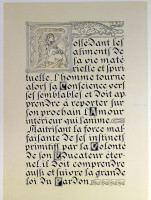 Possédant les
aliments de
sa vie maté
rielle et spiri
tuelle. l'homme tourne
alors sa Conscience vers
ses semblables et doit ap
prendre à reporter sur
son prochain l'Amour
intérieur qui l'anime.
Maîtrisant la force mal
faisante de ses instincts
primitifs par la Volonté
de son Éducateur éter
nel. il doit comprendre
aussi et suivre la grande
loi du Pardon.